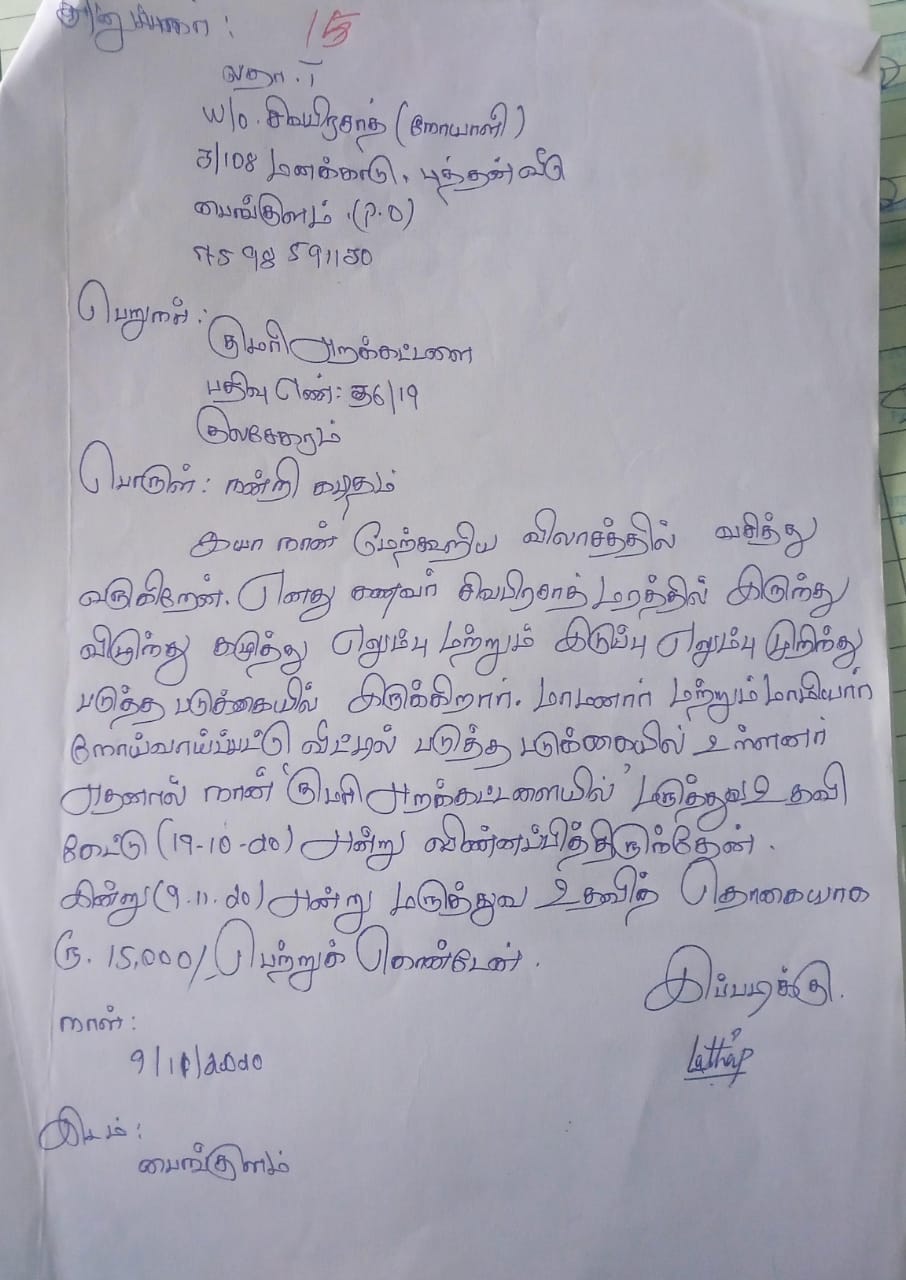 அனுப்புனர்: 15
லதா. T
W/o. சிவபிரசாத் (நோயாளி)
3/108 மணக்காடு, புத்தன்வீடு
பைங்குளம். (P.O)
பெறுநர்:
குமரி அறக்கட்டளை
பதிவு எண்: 36/19
குலசேகரம்
பொருள்: நன்றி கடிதம்
ஐயா நான் மேற்கூறிய விலாசத்தில் வசித்து
வருகிறேன். எனது கணவர் சிவபிரசாத் மரத்தில் இருந்து
விழுந்து கழுத்து எலும்பு மற்றும் இடுப்பு எலும்பு முறிந்து
படுத்த படுக்கையில் இருக்கிறார். மாமனார் மற்றும் மாமியார்
நோய்வாய்ப்பட்டு வீட்டில் படுத்த படுக்கையில் உள்ளனர்
அதனால் நான் 'குமரி அறக்கட்டளையில்' மருத்துவ உதவி
கேட்டு (19-10-20) அன்று விண்ணப்பித்திருந்தேன்.
இன்று (9.11.20) அன்று மருத்துவ உதவித் தொகையாக
ரூ. 15,000/- பெற்றுக் கொண்டேன்.
இப்படிக்கு.
நாள்:
9/11/2020
இடம்:
பைங்குளம்